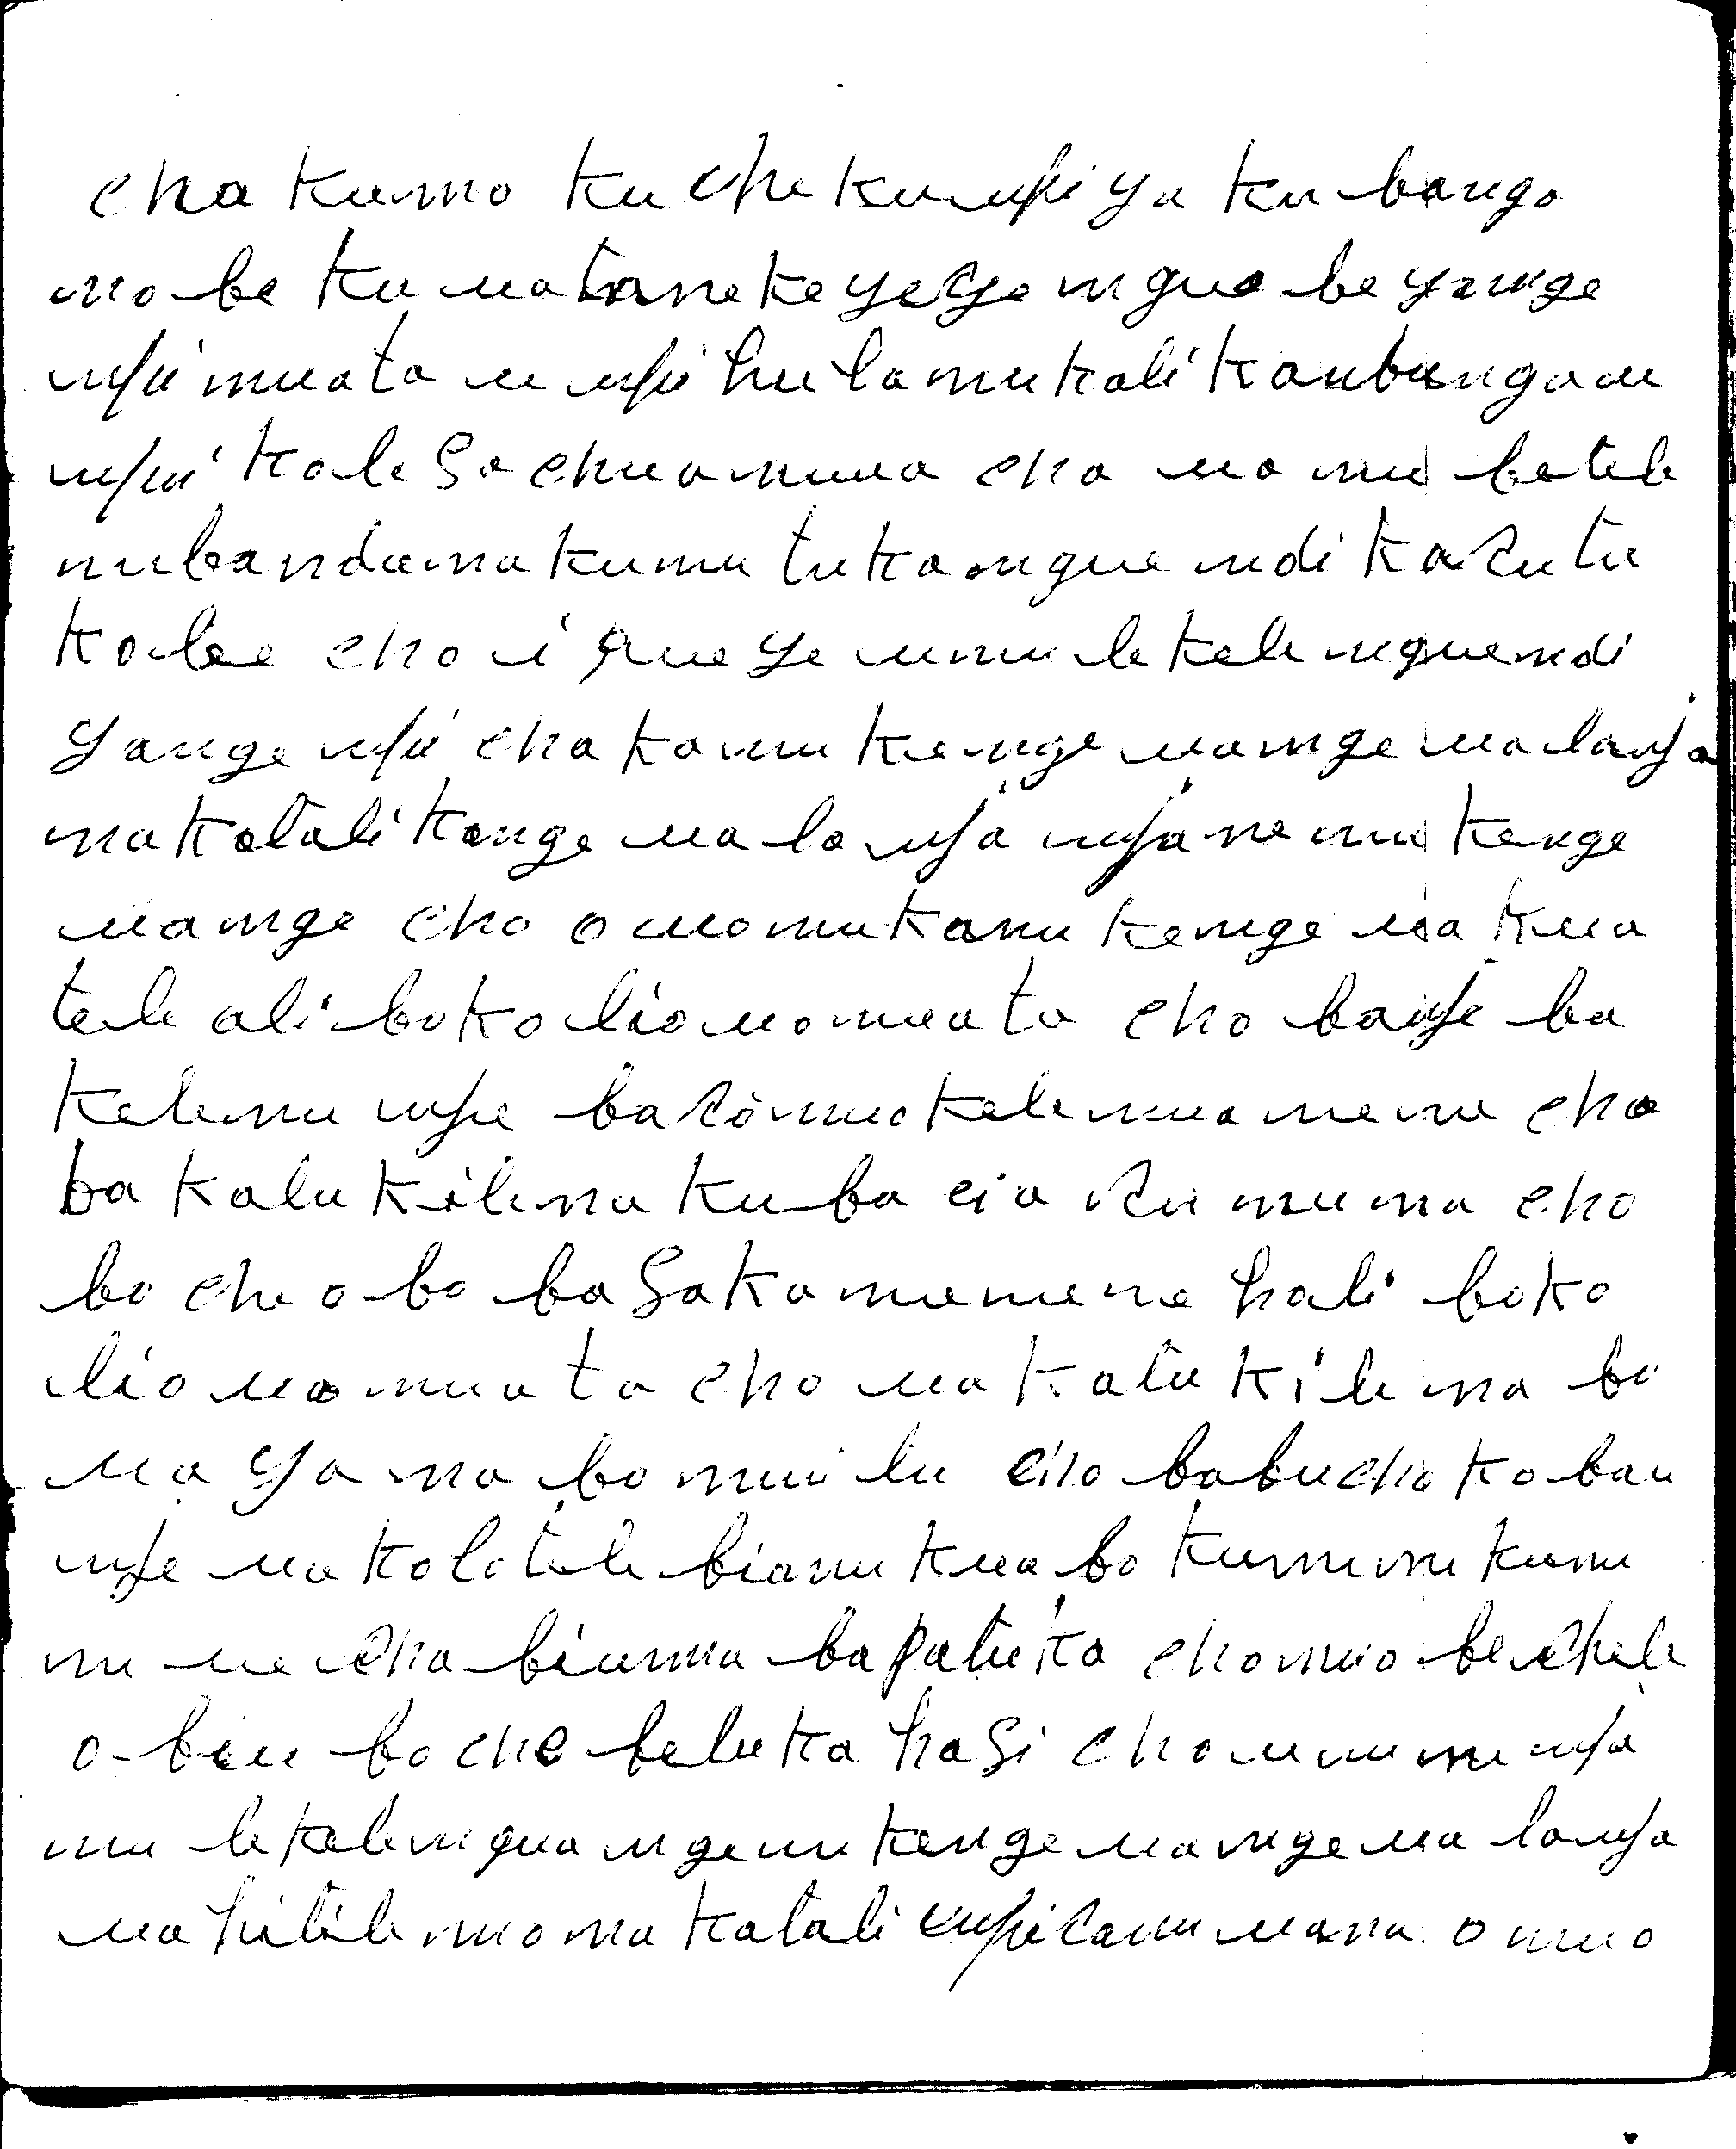 cha kumo ku che kunfi ya ku bango
mo be ku ua tane ke ye ye ngue be yange
nfu muata u nfu hu la mu kali kanbungu u
nfui kale So chuamuua cha ua mu botele
mubandama kumu tuka ngue ndi ka Sutu
kolee cho i que ye umu le kele nguendi
yange nfu cha kamu kenge uamge ualanja
ma katali kange ua lanfa nfa ne mu kenge
uange cho o uomukamu kenge ua kua
tele ali boko lio uo muata cho banfe ba
kelemu nfe ba Somuo kele mua mene cha
ba kalu kile na ku ba cia Su mu ma cho
bo che o bo ba Saka mu mene hali boko
lio ua muata cho ua kalu kile na bi
ua ya ma bo mui lu cho babucho ko bau
nfe ua kolo tele bianu kua bo kumu mu kumu
mu ue cha biuma ba patuka cho muo be chele
o biu bo che beluka haSi cho u mu mu nfa
mu le kele ngua nge mu kenge uamge ua lanfa
ua hitile muo ma katali unfi Samu uana o muo